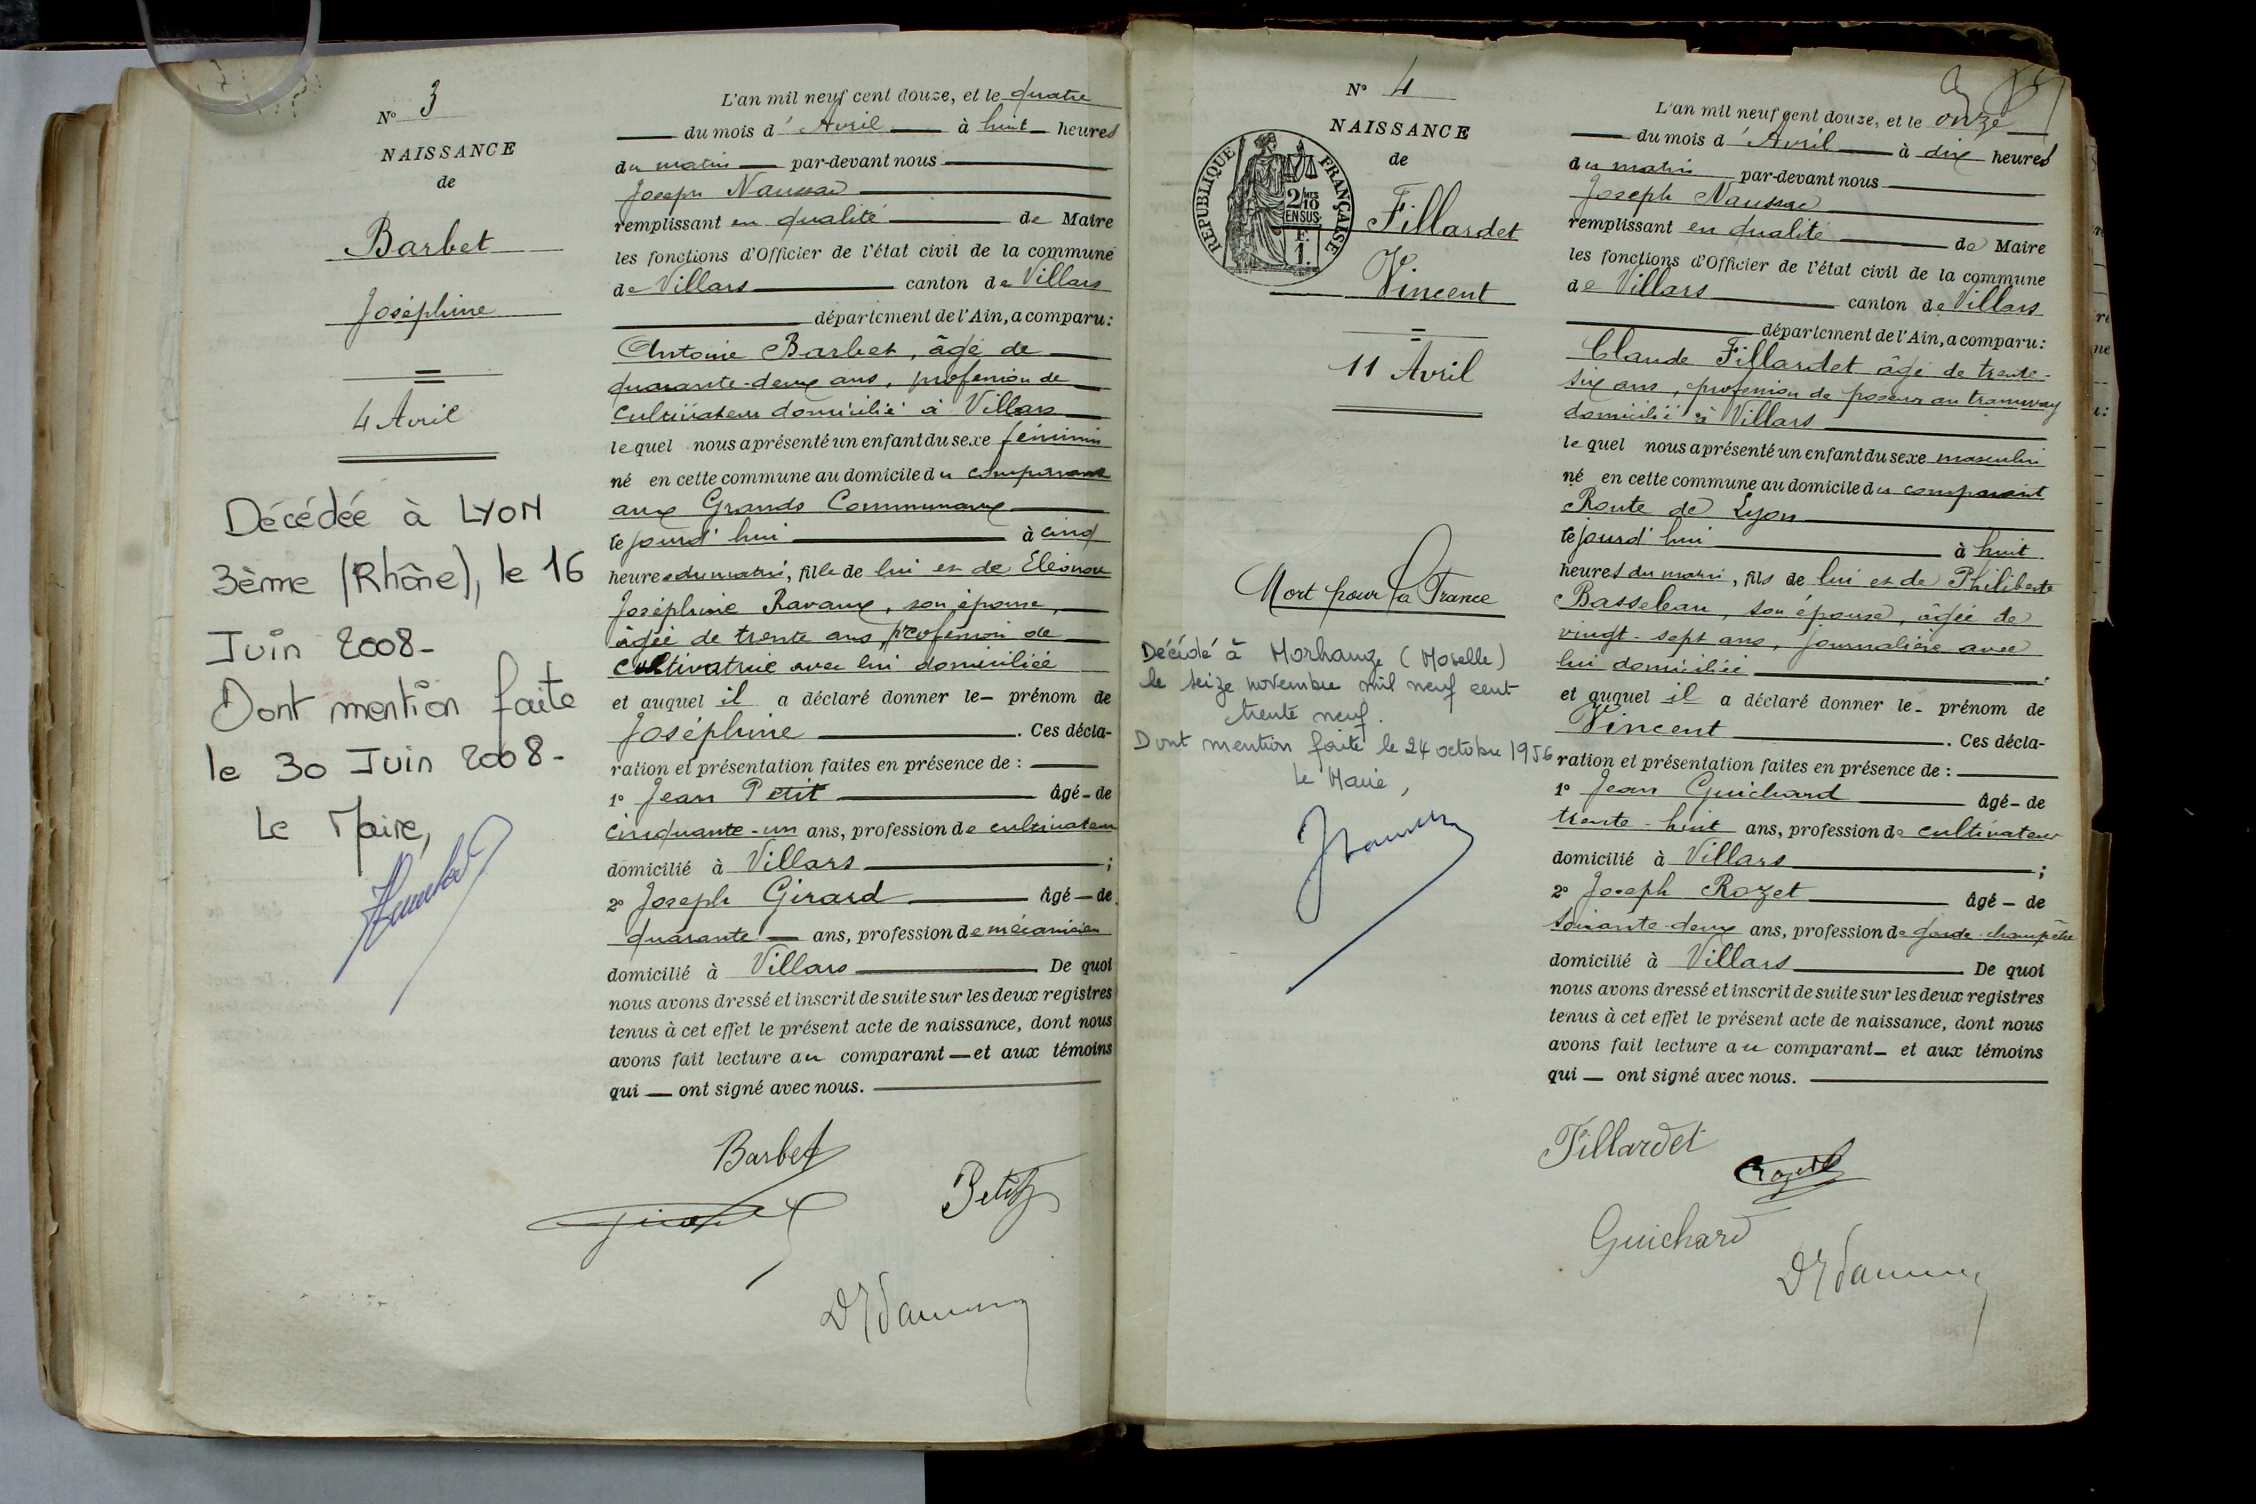 N° 3
NAISSANCE
de
Barbet
Joséphine
4 Avril
Décédée à LYON
3ème (Rhône), le 16
Juin 2008-
Dont mention faite
le 30 Juin 2008-
Le Maire,
L'an mil neuf cent douze, et le quatre
du mois d'Avril à huit heures
du matin par-devant nous
Joseph Naussac
remplissant en qualité de Maire
les fonctions d'Officier de l'état civil de la commune
de Villars canton de Villars
département de l'Ain, a comparu:
Antoine Barbet, âgé de
quarante-deux ans, profession de
cultivateur domicilié à Villars
le quel nous a présenté un enfant du sexe féminin
né en cette commune au domicile du comparant
aux Grands Communaux
le jourd'hui à cinq
heures du matin, fille de lui et de Eléonore
Joséphine Ravaux, son épouse,
âgée de trente ans, profession de
cultivatrice avec lui domiciliée
et auquel il a déclaré donner le- prénom de
Joséphine . Ces décla-
ration et présentation faites en présence de :
1° Jean Petit âgé-de
cinquante-un ans, profession de cultivateur
domicilié à Villars ;
2° Joseph Girard âgé-de
quarante ans, profession de mécanicien
domicilié à Villars De quoi
nous avons dressé et inscrit de suite sur les deux registres
tenus à cet effet le présent acte de naissance, dont nous
avons fait lecture au comparant-et aux témoins
qui - ont signé avec nous.
Barbet
Girard
Petit
N° 4
NAISSANCE
de
RÉPUBLIQUE FRANÇAISE
2/10 MES
EN SUS.
F.
1.
Fillardet
Vincent
11 Avril
Mort pour la France
Décédé à Morhange (Moselle)
le seize novembre mil neuf cent
trente neuf.
Dont mention faite le 24 octobre 1956
Le Maire,
L'an mil neuf cent douze, et le onze
du mois d'Avril à dix heures
du matin par-devant nous
Joseph Naussac
remplissant en qualité de Maire
les fonctions d'Officier de l'état civil de la commune
de Villars canton de Villars
département de l'Ain, a comparu:
Claude Fillardet âgé de trente-
six ans, profession de poseur au tramway
domicilié à Villars
le quel nous a présenté un enfant du sexe masculin
né en cette commune au domicile du comparant
Route de Lyon
le jourd'hui à huit
heures du matin, fils de lui et de Philiberte
Basseleau, son épouse, âgée de
vingt-sept ans, journalière avec
lui domiciliée
et auquel il a déclaré donner le- prénom de
Vincent . Ces décla-
ration et présentation faites en présence de :
1° Jean Guichard âgé-de
trente-huit ans, profession de cultivateur
domicilié à Villars ;
2° Joseph Rozet âgé-de
soixante-deux ans, profession de garde-champêtre
domicilié à Villars De quoi
nous avons dressé et inscrit de suite sur les deux registres
tenus à cet effet le présent acte de naissance, dont nous
avons fait lecture au comparant- et aux témoins
qui - ont signé avec nous.
Fillardet
Rozet
Guichard